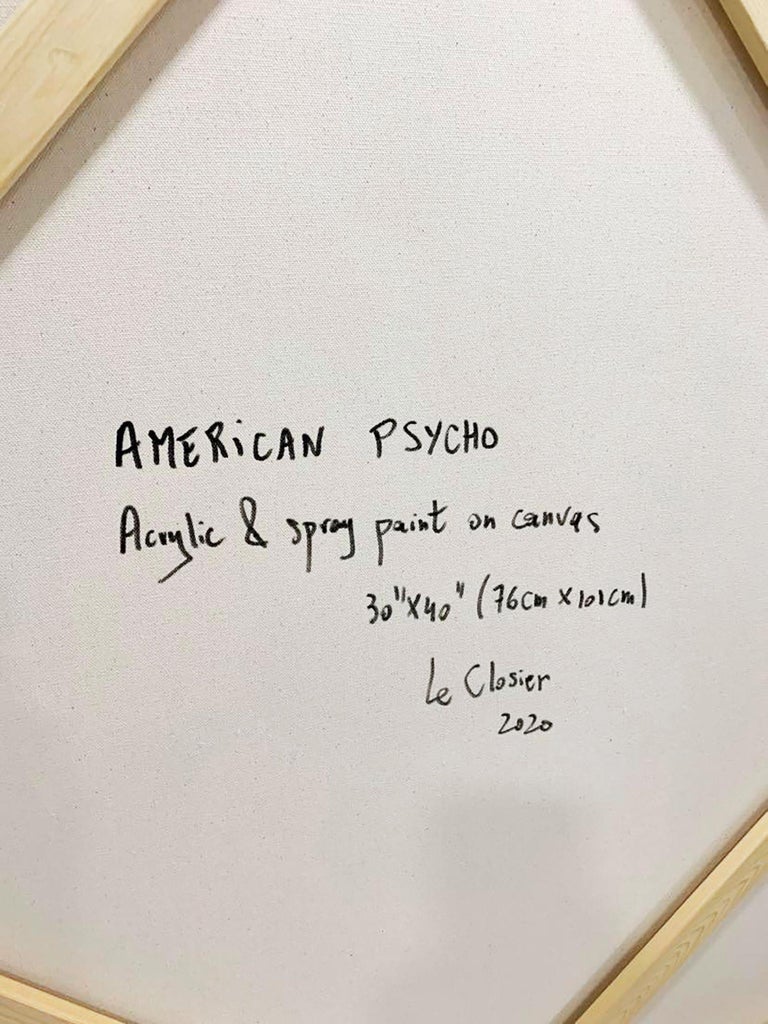 AMERiCAN PSYCHO
Acrylic & spray paint on canvas
30"X40" (76cm X 101cm)
Le Closier
2020